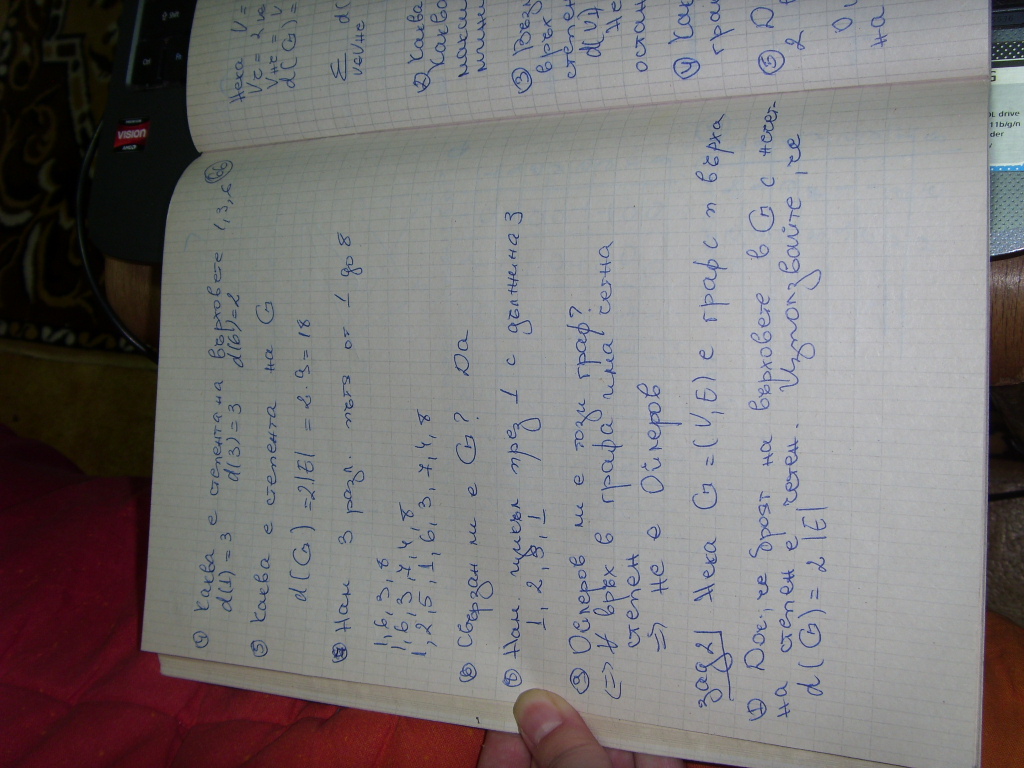 ④ Каква е степента на върховете 1,3,6
d(1) = 3 d(3) = 3 d(6) = 2
⑤ Каква е степента на G
d(G) = 2|E| = 2.9 = 18
Нам 3 разл. пътя от 1 до 8
1,6,3,8
1,6,3,7,4,8
1,2,5,1,6,3,7,4,8
⑥ Свързан ли е G? Да
Нам. цикъл през 1 с дължина 3
1,2,3,1
Ойлеров ли е този граф?
(=> ∀ връх в графа има четна
степен
=> Не е Ойлеров
зад2| Нека G = (V,E) е граф с n върха
① Док., че броят на върховете в G с нечет-
на степен е четен. Използвайте, че
d(G) = 2|E|
Нека V =
d(G) =
Σ d(
② Каква
Каква
③
връх
степен
d(v)
Не
остана
④ Как
гра
⑤ Д
2
на
VISION
AMD
OL drive
11b/g/n
der